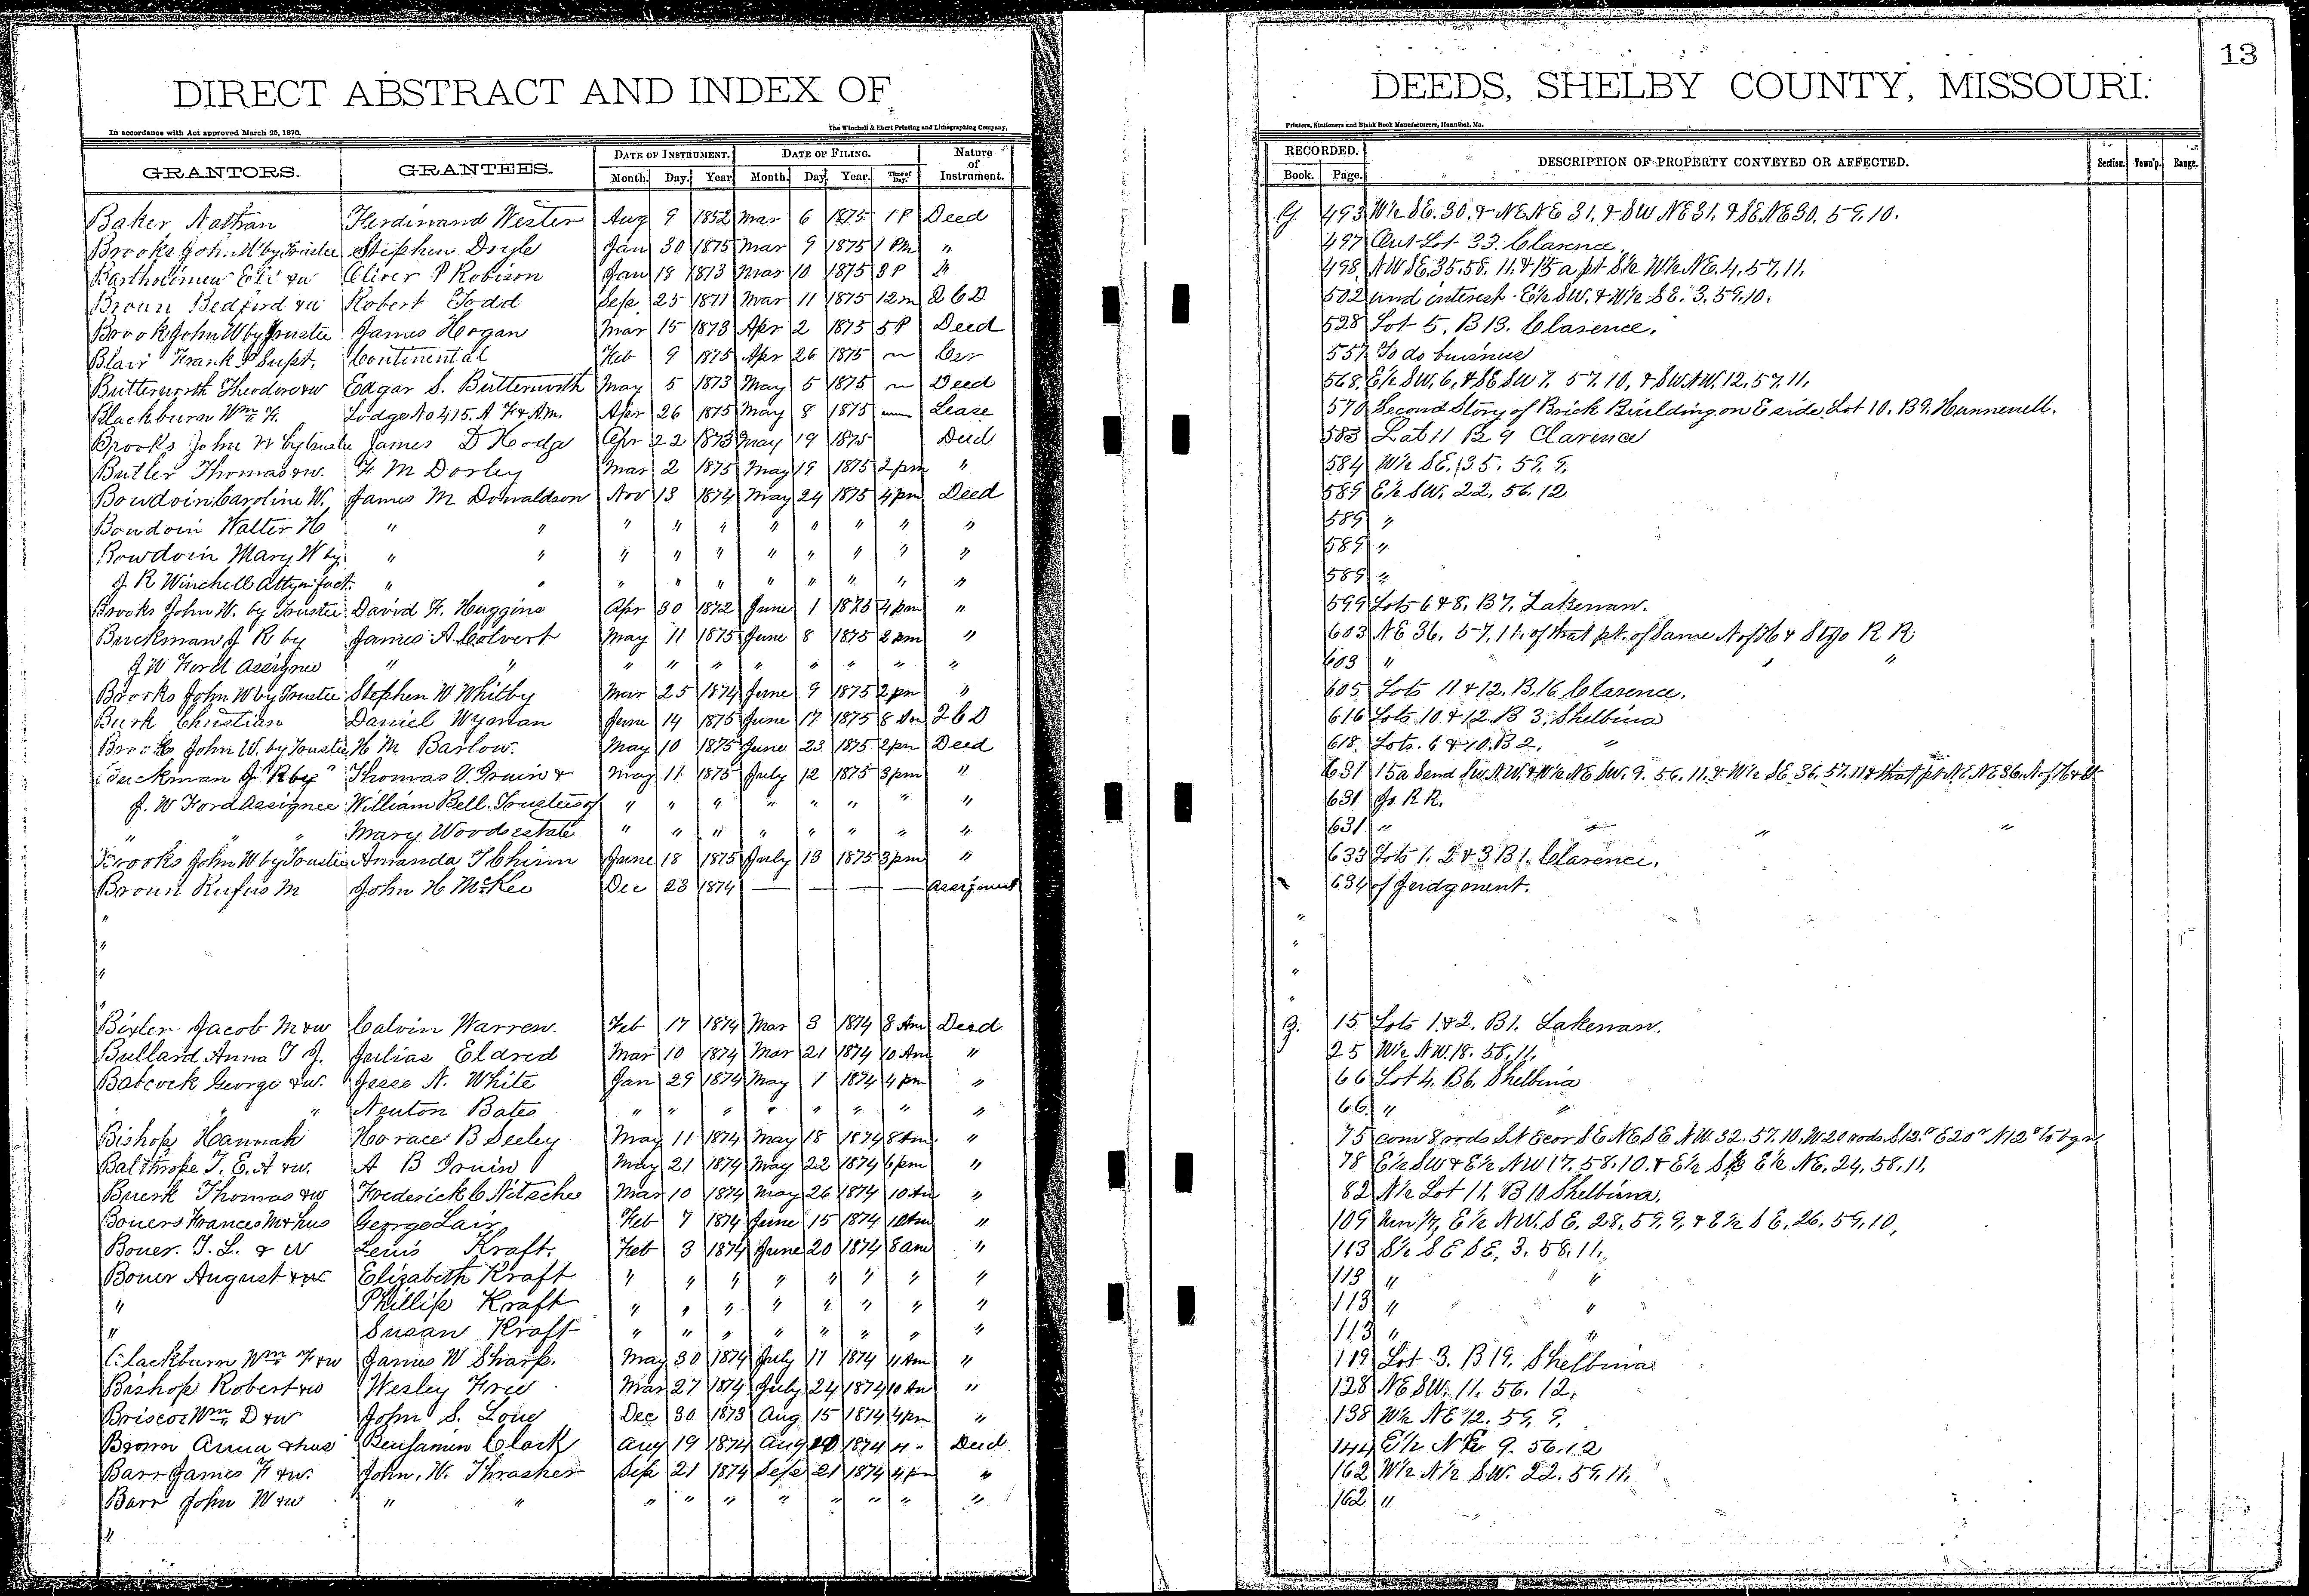 13
DIRECT ABSTRACT AND INDEX OF DEEDS, SHELBY COUNTY, MISSOURI.
In accordance with Act approved March 25, 1870. The Winchell & Ebert Printing and Lithographing Company, Printers, Stationers and Blank Book Manufacturers, Hannibal, Mo.
GRANTORS. GRANTEES. DATE OF INSTRUMENT. DATE OF FILING. Nature of Instrument. RECORDED. DESCRIPTION OF PROPERTY CONVEYED OR AFFECTED. Section. Town'p. Range.
Month. Day. Year. Month. Day. Year. Time of Day. Book. Page.
Baker Nathan Ferdinand Wester Aug 9 1852 Mar 6 1875 1 P Deed G 493 W½ SE. 30. & NE NE 31. & SW NE 31. & SE NE 30. 59. 10.
Brooks John W by Trustee Stephen Doyle Jan 30 1875 Mar 9 1875 1 Pm " 497 Out Lot 33. Clarence
Bartholimew Eli & w Oliver P Robison Jan 18 1873 Mar 10 1875 3 P " 498 NW SE. 35. 58. 11. & 15 a pt S½ W½ NE. 4. 57. 11.
Broun Bedford & w Robert Todd Sep 25 1871 Mar 11 1875 12 m Q C D 502 und interest E½ SW. & W½ SE. 3. 59. 10.
Brook John W by Trustee James Hogan Mar 15 1873 Apr 2 1875 5 P Deed 528 Lot 5. B 13. Clarence.
Blair Frank P Supt. Continental Feb 9 1875 Apr 26 1875 Cer 557 To do business
Butterworth Theodore & w Edgar S. Butterworth May 5 1873 May 5 1875 Deed 568 E½ SW. 6. & SE SW 7. 57. 10. & SW NW. 12. 57. 11.
Blackburn Wm F. Lodge No 415. A F & A.M. Apr 26 1875 May 8 1875 Lease 570 Second Story of Brick Building on E side Lot 10. B 9. Hunnewell.
Brooks John W by trustee James D Hodge Apr 22 1873 May 19 1875 Deed 583 Lot 11 B 9 Clarence
Butler Thomas & w. F M Dorley Mar 2 1875 May 19 1875 2 pm " 584 W½ SE. 35. 59. 9.
Bowdoin Caroline W. James M Donaldson Nov 13 1874 May 24 1875 4 pm Deed 589 E½ SW. 22. 56. 12
Bowdoin Walter H " " " " " " " " " " 589 "
Bowdoin Mary W by " " " " " " " " " " 589 "
J R Winchell Atty in fact. " " " " " " " " " " 589 "
Brooks John W. by Trustee David F. Huggins Apr 30 1872 June 1 1875 4 pm " 599 Lots 6 & 8. B 7. Lakenan.
Buckman J R by James A. Colvert May 11 1875 June 8 1875 2 pm " 603 NE 36. 57. 11. of that pt. of Same N of H & St Jo R R
J W Ford Assignee " " " " " " " " " " 603 " "
Brooks John W by Trustee Stephen W Whitby Mar 25 1874 June 9 1875 2 pm " 605 Lots 11 & 12. B. 16 Clarence.
Burk Christian Daniel Wyman June 14 1875 June 17 1875 8 Am Q C D 616 Lots 10 & 12. B 3. Shelbina
Brooks John W. by Trustee H M Barlow. May 10 1875 June 23 1875 2 pm Deed 618 Lots. 6 & 10. B 2. "
Buckman J R by Thomas O. Irwin & May 11 1875 July 12 1875 3 pm " 631 15a Send SW. NW. & W½ NE SW. 9. 56. 11. & W½ SE. 36. 57. 11 & that pt NE NE 36. N of H & St
J. W Ford Assignee William Bell. Trustees of " " " " " " " " 631 Jo R R.
" " " Mary Woods estate " " " " " " " " 631 " " " "
Brooks John W by Trustee Amanda J Chinn June 18 1875 July 13 1875 3 pm " 633 Lots 1. 2 & 3 B 1. Clarence.
Broun Rufus M John H McKee Dec 23 1874 — — — — Assignment 634 of Judgment.
" "
" "
" "
" "
Bixler Jacob M & w Calvin Warren. Feb 17 1874 Mar 3 1874 8 Am Deed 15 Lots 1. & 2. B 1. Lakenan.
Bullard Anna T J. Julias Eldred Mar 10 1874 Mar 21 1874 10 Am " 25 W½ NW. 18. 58. 11.
Babcock George & w. Jesse N. White Jan 29 1874 May 1 1874 4 pm " 66 Lot 4. B 6. Shelbina
" " " Newton Bates " " " " " " " " 66 " "
Bishop Hannah Horace B Seeley May 11 1874 May 18 1874 8 Am " 75 com 8 rods S N E cor SE NE SE NW. 32. 57. 10. W 20 rods. S 12 " E 20 " N 12 " to bgn
Balthrope T. E. A & w. A B Irwin May 21 1874 May 22 1874 6 pm " 78 E½ SW & E½ NW 17. 58. 10. & E½ E½ NE. 24. 58. 11.
Buerk Thomas & w Frederick C Nitsche Mar 10 1874 May 26 1874 10 Am " 82 N½ Lot 11, B 10 Shelbina.
Bowers Frances M & hus George Lair Feb 7 1874 June 15 1874 10 Am " 109 E½ NW. SE. 28. 59. 9. & E½ SE. 26. 59. 10.
Bower. T. L. & W Lewis Kraft. Feb 3 1874 June 20 1874 8 am " 113 S½ SE SE. 3. 58. 11.
Bower August & w Elizabeth Kraft " " " " " " " " 113 " "
" Phillip Kraft " " " " " " " " 113 " "
" Susan Kraft " " " " " " " " 113 " "
Blackburn Wm F & w James W Sharp. May 30 1874 July 11 1874 11 Am " 119 Lot 3. B 19. Shelbina
Bishop Robert & w Wesley Free Mar 27 1874 July 24 1874 10 Am " 128 NE SW. 11. 56. 12.
Briscoe Wm D & w John S. Love Dec 30 1873 Aug 15 1874 4 pm " 138 W½ NE 12. 59. 9.
Brown Anna & hus Benjamin Clark Aug 19 1874 Aug 20 1874 Deed 144 E½ 9. 56. 12
Barr James F & w. John. W. Thrasher Sep 21 1874 Sep 21 1874 4 pm " 162 W½ N½ SW. 22. 59. 11.
Barr John W & w " " " " " " " " " " 162 "
"